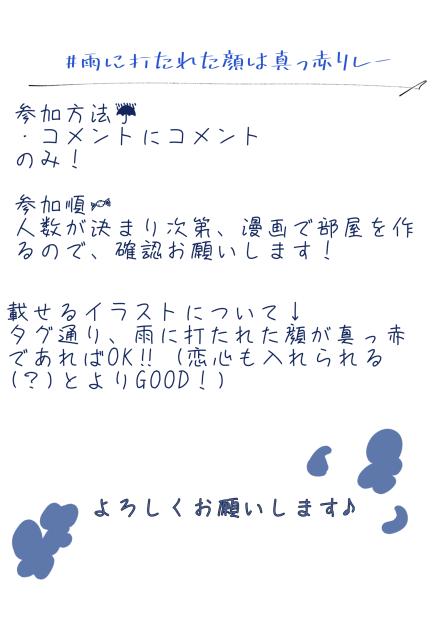 #雨に打たれた顔は真っ赤リレー
参加方法☂
・コメントにコメント
のみ！
参加順🍬
人数が決まり次第、漫画で部屋を作
るので、確認お願いします！
載せるイラストについて↓
タグ通り、雨に打たれた顔が真っ赤
であればOK!! (恋心も入れられる
(?)とよりGOOD！)
よろしくお願いします♪